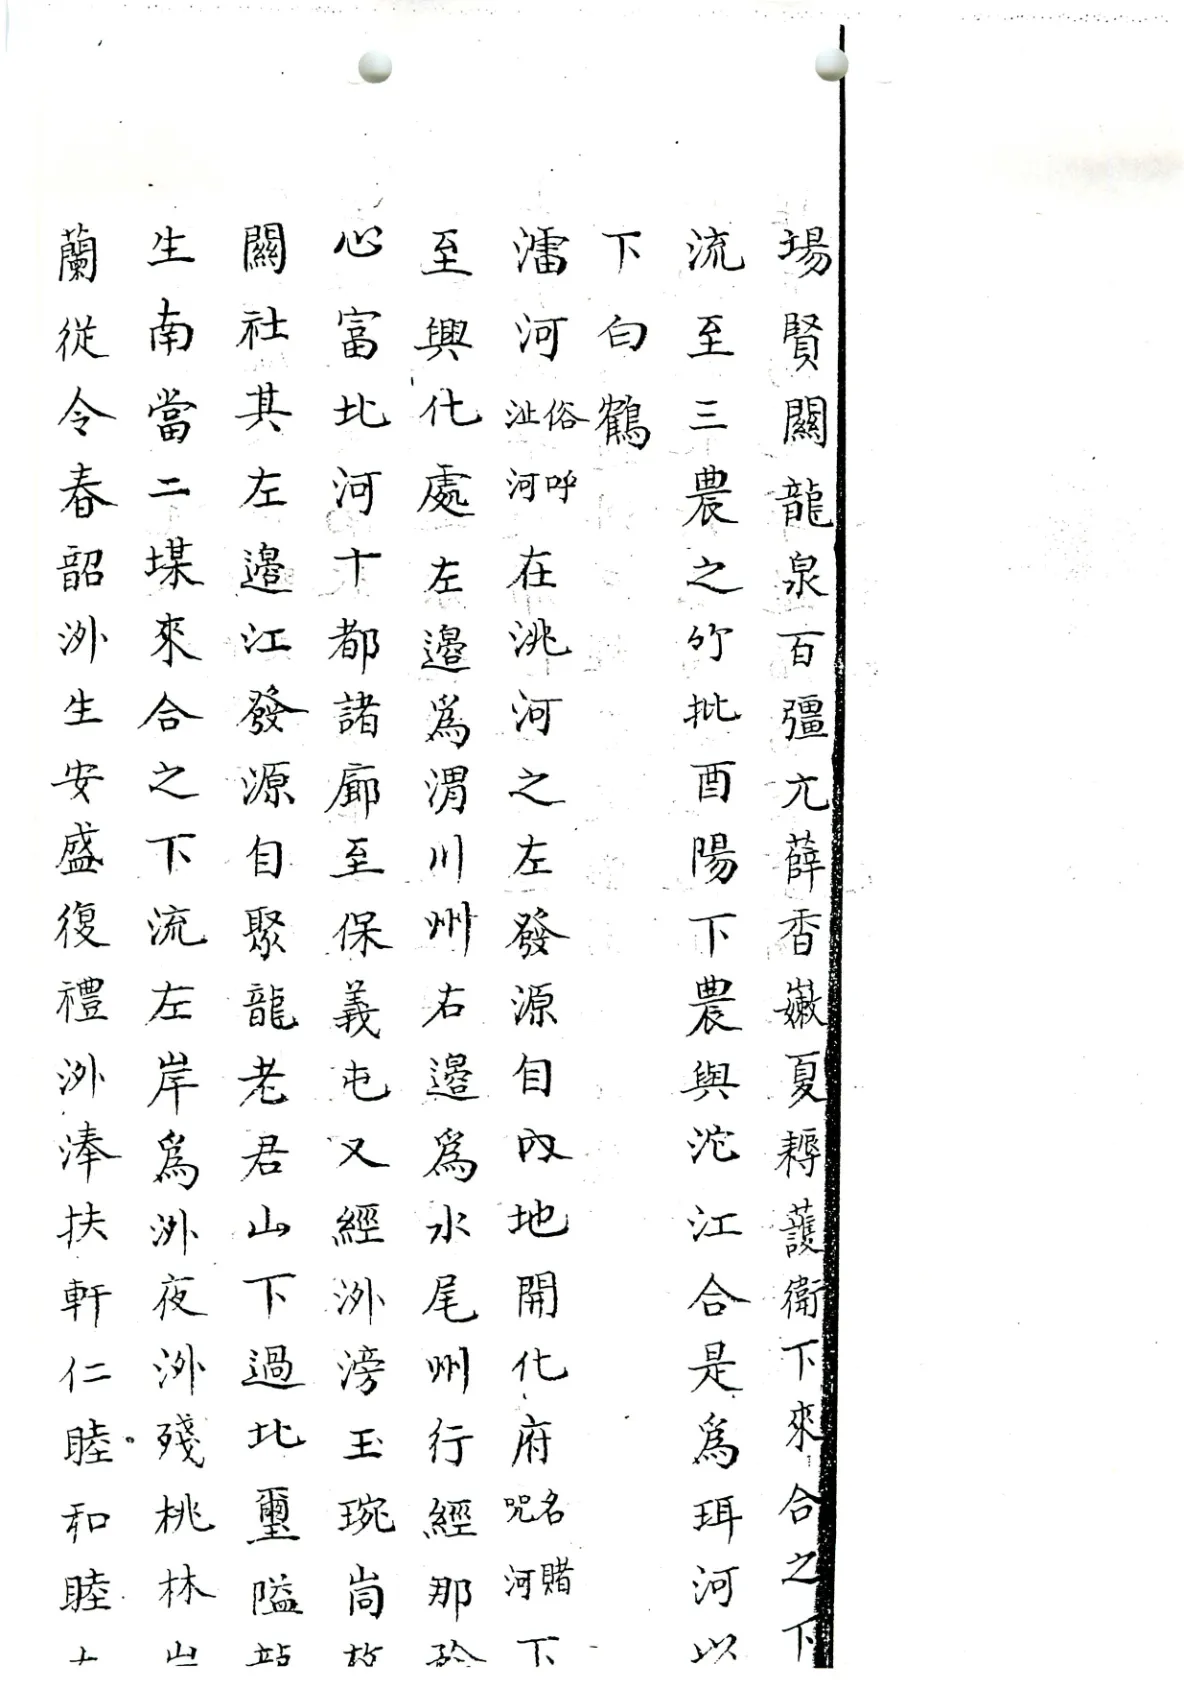 場賢關龍泉百彊亢薛香嫩夏耨蘐衛下來合之下
流至三農之竹批酉陽下農與沱江合是為珥河以
下白鶴
瀋河俗呼沚河在洮河之左發源自內地開化府名賭咒河下
至興化處左邊為渭川州右邊為水尾州行經那於
心富北河十都諸廊至保義屯又經洲滂玉琬尚故
關社其左邊江發源自聚龍老君山下過北璽隘站
生南當二堞來合之下流左岸為洲夜洲殘桃林山
蘭從令春韶洲生安盛復禮洲湊扶軒仁睦和睦